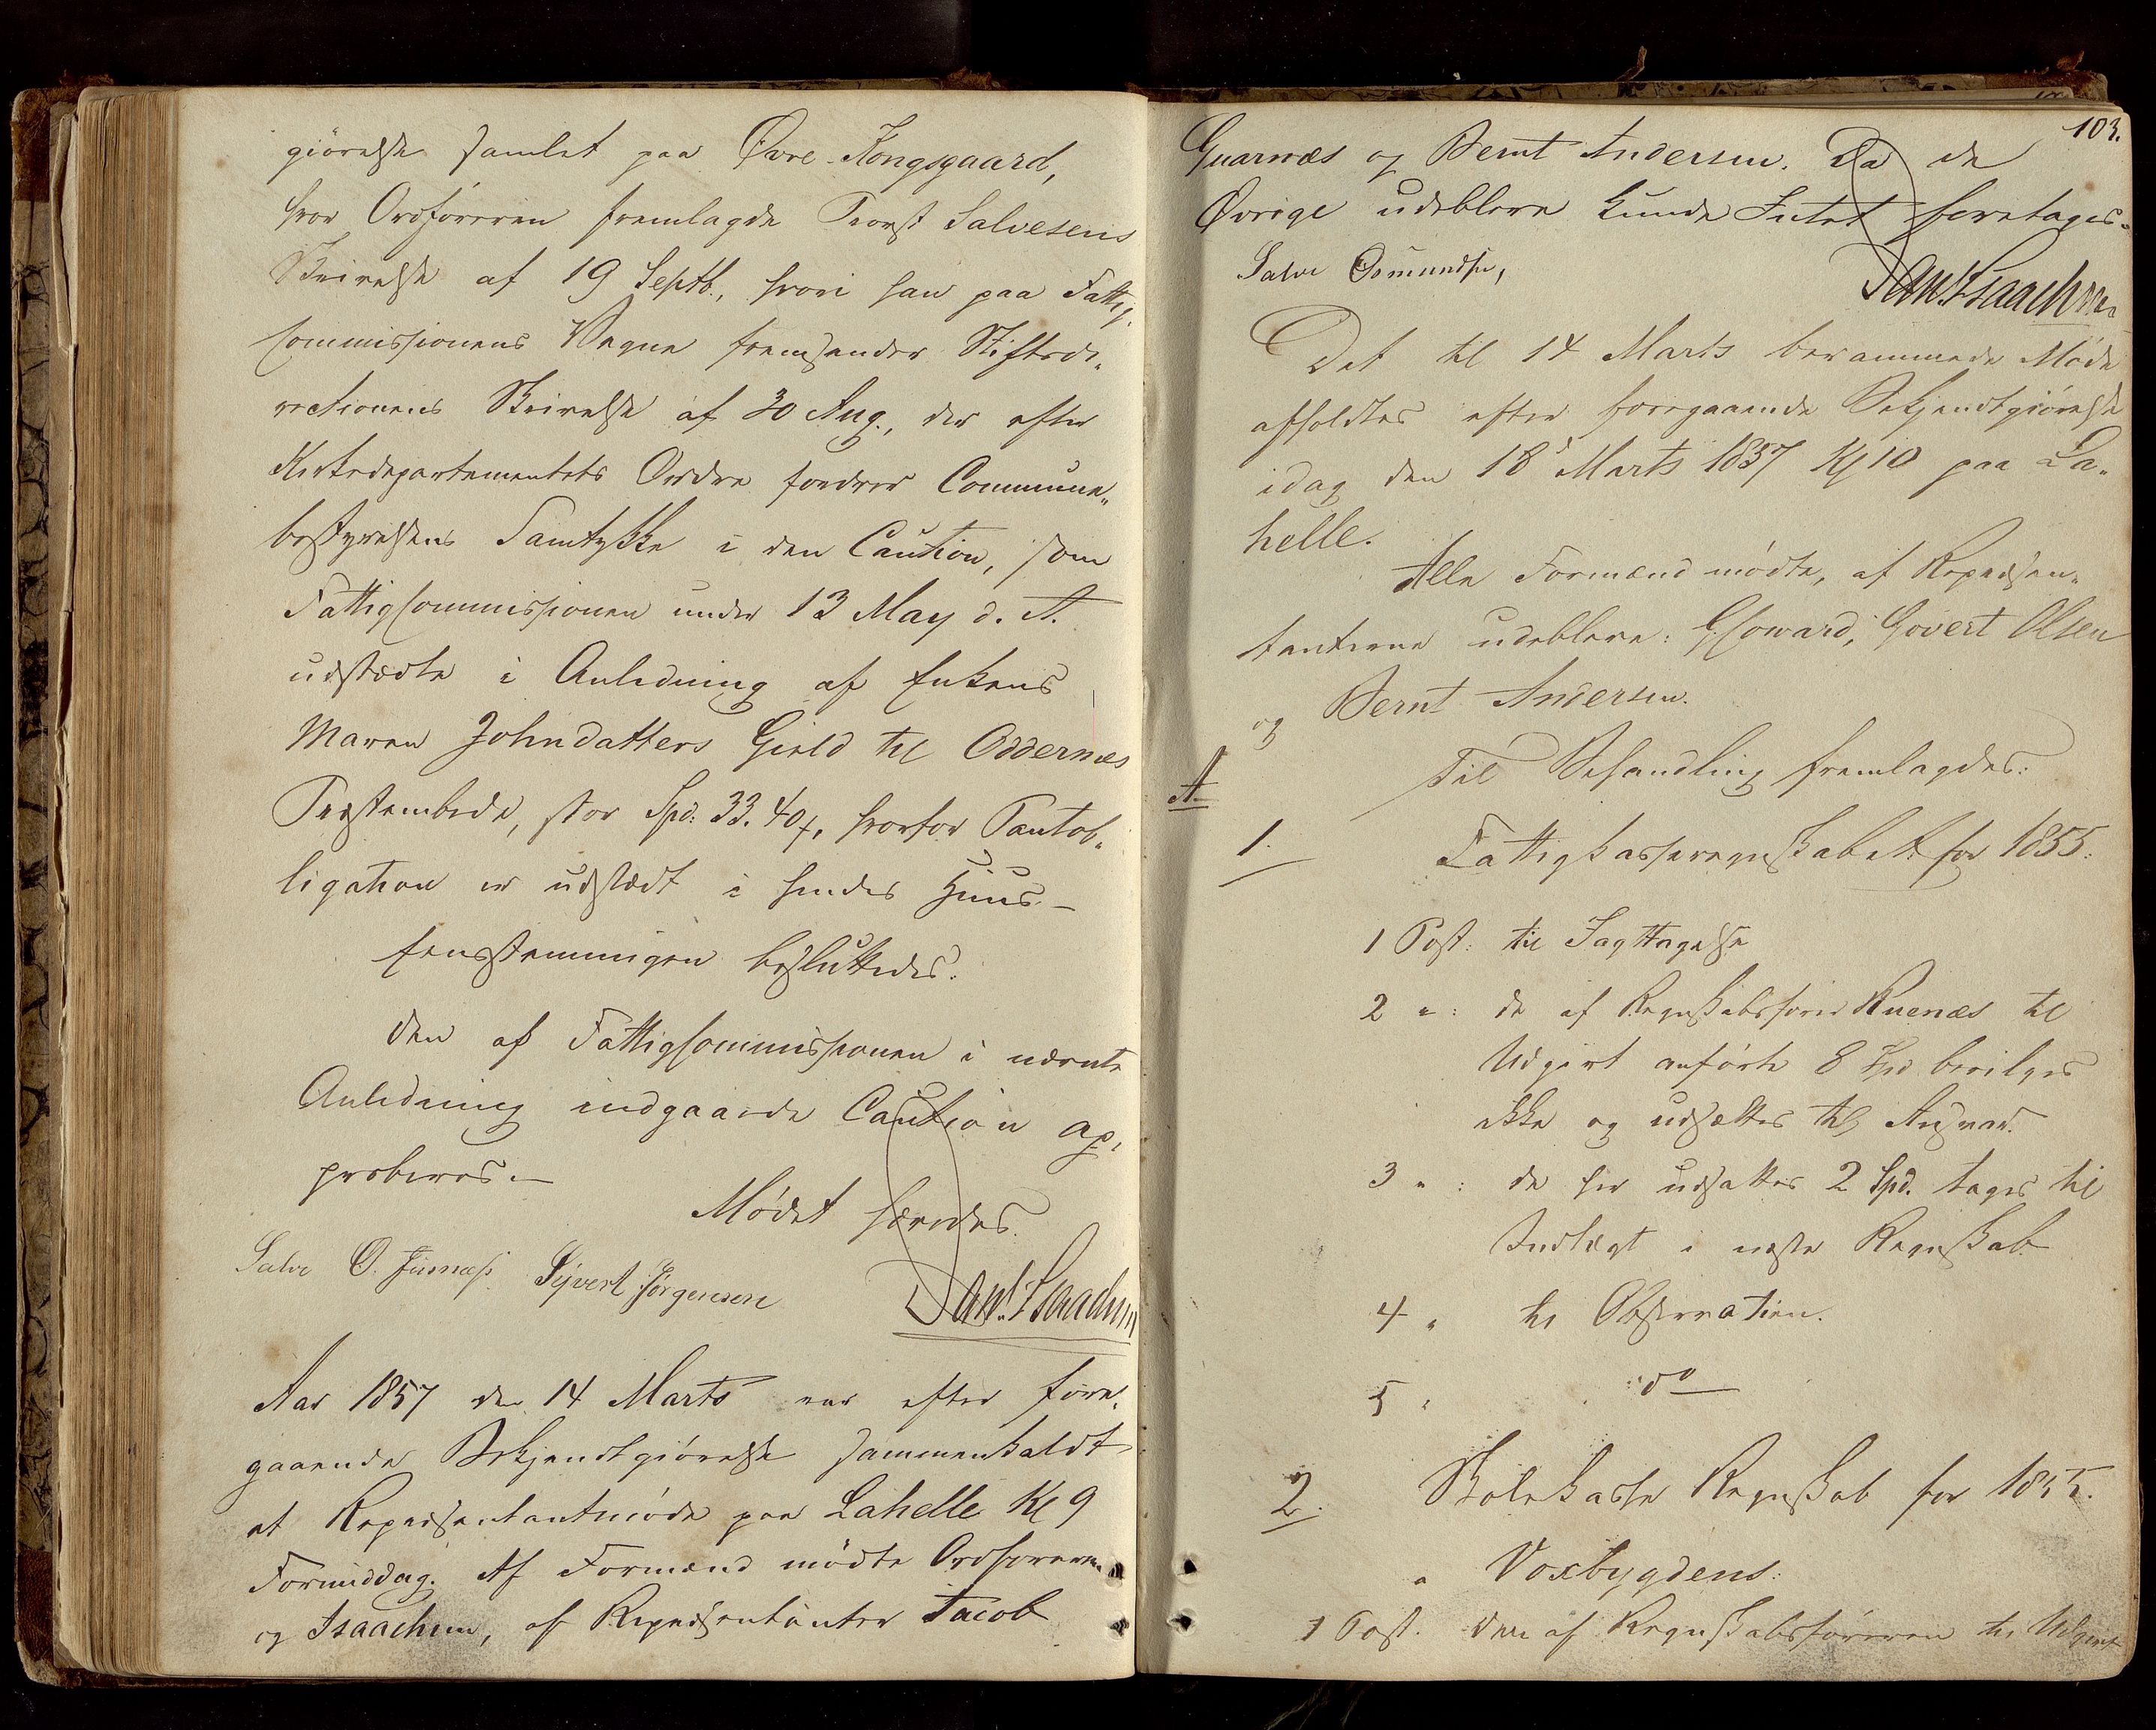 giørelse samlet paa Øvre-Kongsgaard,
hvor Ordføreren fremlagde Provst Salvesens
Skrivelse af 19 Septb., hvori han paa Fattig-
Commissionens Vegne fremsender Stiftsdi-
rectionens Skrivelse af 30 Aug., der efter
Kirkedepartementets Ordre fordrer Commune-
bestyrelsens Samtykke i den Caution, som
Fattigcommissionen under 13 May d. A.
udstædte i Anledning af Enkens
Maren Johndatters Gield til Oddernes
Præstembede, stor Spd: 33. 40, hvorfor Pantob-
ligation er udstædt i hendes Huus.—
Eensstemmigen besluttedes:
Den af Fattigcommissionen i nævnte
Anledning indgaaede Caution ap-
proberes.—
Mødet hævedes.
Salve O. Sijvert Jørgensen Dan. Isaachsen
Aar 1857 den 14 Marts var efter fore-
gaaende Bekjendtgiørelse sammenkaldt
et Repræsentantmøde paa Lahelle Kl 9
Formiddag. Af Formænd mødte Ordføreren
og Isaachsen, af Repræsentanter Jacob
103.
Guarnæs og Bernt Andersen. Da de
Øvrige udebleve kunde Intet foretages.
Salve Osmundsen, Dan. Isaachsen
Det til 14 Marts berammede Møde
afholdtes efter foregaaende Bekjendtgiørelse
idag den 18 Marts 1857 Kl 10 paa La-
helle.
Alle Formænd mødte, af Repræsen-
tanterne udebleve: Govert Olsen
og Bernt Andersen.
Til Behandling fremlagdes:
A
1. Fattigkasseregnskabet for 1855.
1 Post: til Iagttagelse
2 " : de af Regnskabsfører Ruenæs til
Udgivt anførte 8 Spd bevilges
ikke og udsættes til Ansvar.
3 " : de her udsatte 2 Spd. tages til
Indtægt i næste Regnskab
4 " til Observation.
5 " do
2. Skolekasse Regnskab for 1855.
a Voxbygdens:
1 Post. Den af Regnskabsføreren til Udgivt